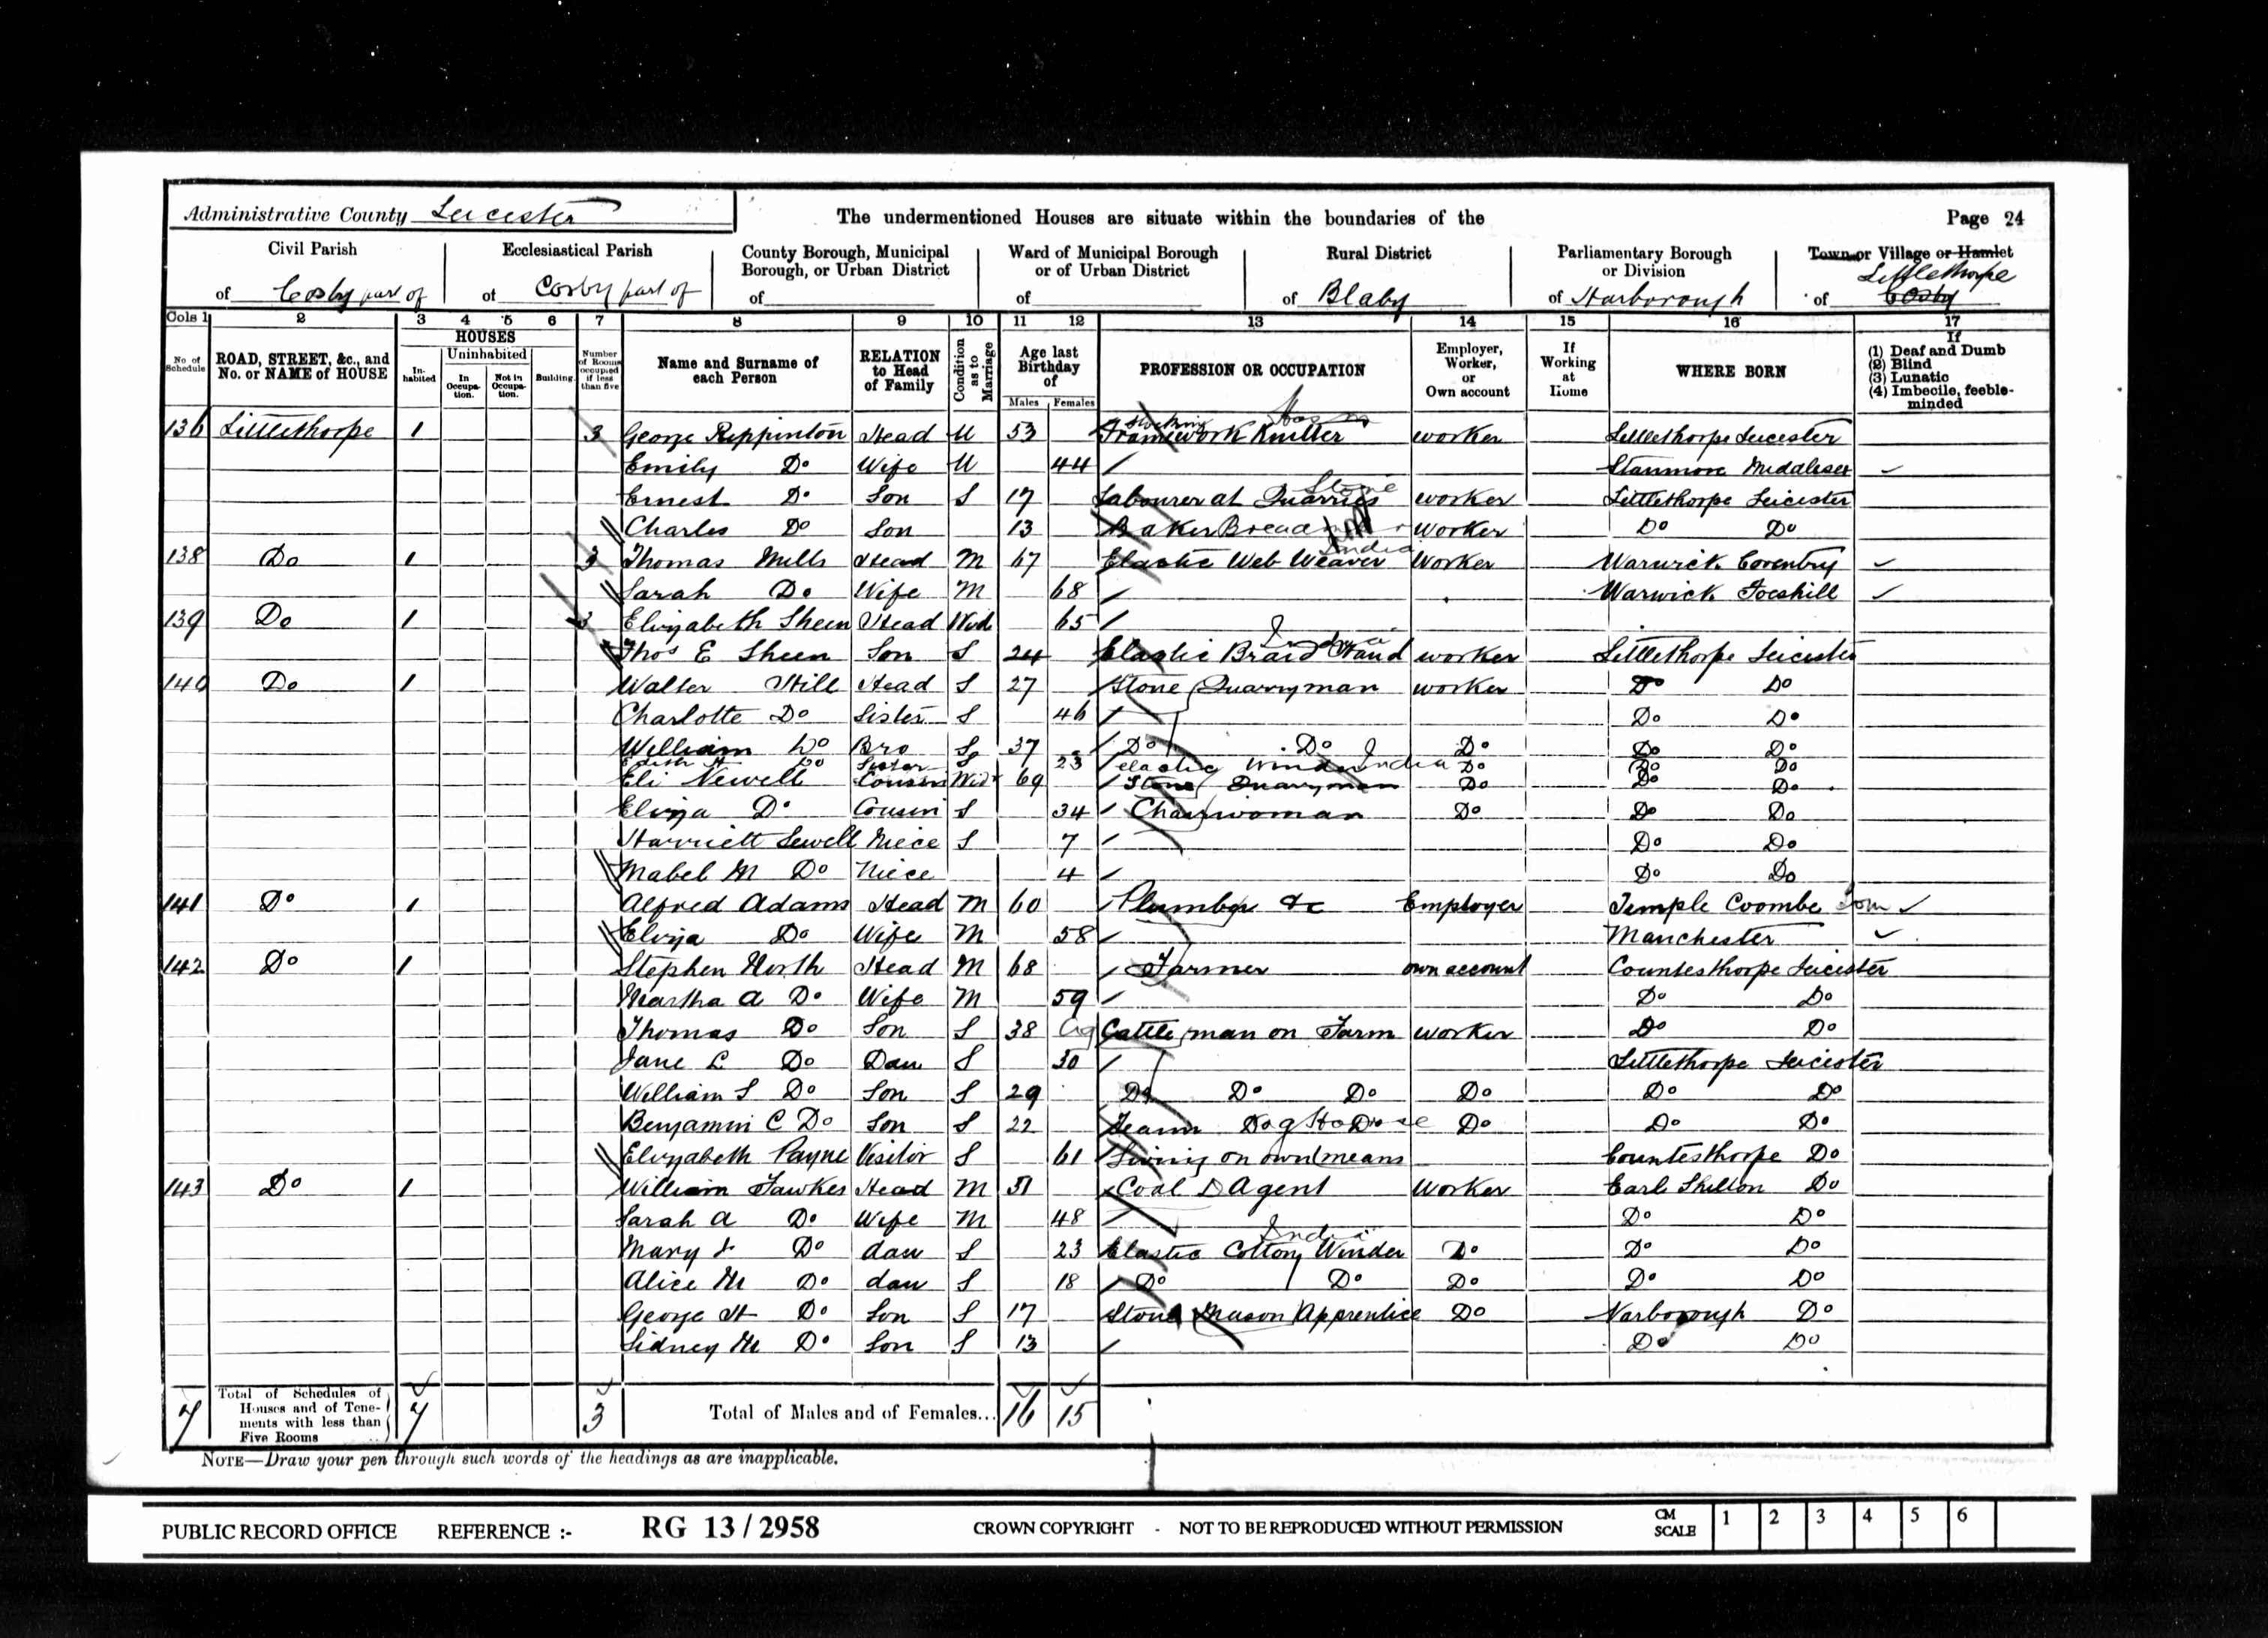 Administrative County Leicester The undermentioned Houses are situate within the boundaries of the Page 24
Civil Parish Ecclesiastical Parish County Borough, Municipal Borough, or Urban District Ward of Municipal Borough or of Urban District Rural District Parliamentary Borough or Division Town or Village or Hamlet
of Cosby part of of Cosby part of of of of Blaby of Harborough of Cosby Littlethorpe
Cols 1 2 3 4 5 6 7 8 9 10 11 12 13 14 15 16 17
No of Schedule ROAD, STREET, &c., and No. or NAME of HOUSE HOUSES Inhabited Uninhabited In Occupation. Not in Occupation. Building. Number of Rooms occupied if less than five Name and Surname of each Person RELATION to Head of Family Condition as to Marriage Age last Birthday of Males Females PROFESSION OR OCCUPATION Employer, Worker, or Own account If Working at Home WHERE BORN If (1) Deaf and Dumb (2) Blind (3) Lunatic (4) Imbecile, feeble-minded
136 Littlethorpe 1 3 George Reppinton Head M 53 Stocking Framework Knitter worker Littlethorpe Leicester
Emily Do Wife M 44 Stanmore Middlesex
Ernest Do Son S 17 Labourer at Quarries Stone worker Littlethorpe Leicester
Charles Do Son 13 Baker Bread worker Do Do
138 Do 1 3 Thomas Mills Head M 67 Elastic Web Weaver India Worker Warwick Coventry
Sarah Do Wife M 68 Warwick Foeshill
139 Do 1 3 Elizabeth Sheen Head Wid 65
Thos E Sheen Son S 24 Elastic Braid Hand India worker Littlethorpe Leicester
140 Do 1 Walter Hill Head S 27 Stone Quarryman worker Do Do
Charlotte Do Sister S 46 Do Do
William Do Bro S 37 Do Do Do Do Do
Edith H Do Sister S 23 elastic Winder India Do Do Do
Eli Newell Cousin Widr 69 Stone Quarryman Do Do Do
Eliza Do Cousin S 34 Charwoman Do Do Do
Harriett Sewell Niece S 7 Do Do
Mabel M Do Niece 4 Do Do
141 Do 1 Alfred Adams Head M 60 Plumber &c Employer Temple Coombe Som
Eliza Do Wife M 58 Manchester
142 Do 1 Stephen North Head M 68 Farmer own account Countesthorpe Leicester
Martha A Do Wife M 59 Do Do
Thomas Do Son S 38 Ag Cattle man on Farm worker Do Do
Jane L Do Dau S 30 Littlethorpe Leicester
William S Do Son S 29 Do Do Do Do Do Do
Benjamin C Do Son S 22 Do Do Do
Elizabeth Payne Visitor S 61 Living on own means Countesthorpe Do
143 Do 1 William Fawkes Head M 51 Coal Agent Worker Earl Shilton Do
Sarah A Do Wife M 48 Do Do
Mary J Do dau S 23 Elastic Cotton Winder India Do Do Do
Alice M Do dau S 18 Do Do Do Do Do
George H Do Son S 17 Stone Mason Apprentice Do Narborough Do
Sidney M Do Son S 13 Do Do
7 Total of Schedules of Houses and of Tenements with less than Five Rooms 7 3 Total of Males and of Females... 16 15
NOTE—Draw your pen through such words of the headings as are inapplicable.
PUBLIC RECORD OFFICE REFERENCE :- RG 13 / 2958 CROWN COPYRIGHT - NOT TO BE REPRODUCED WITHOUT PERMISSION CM SCALE 1 2 3 4 5 6